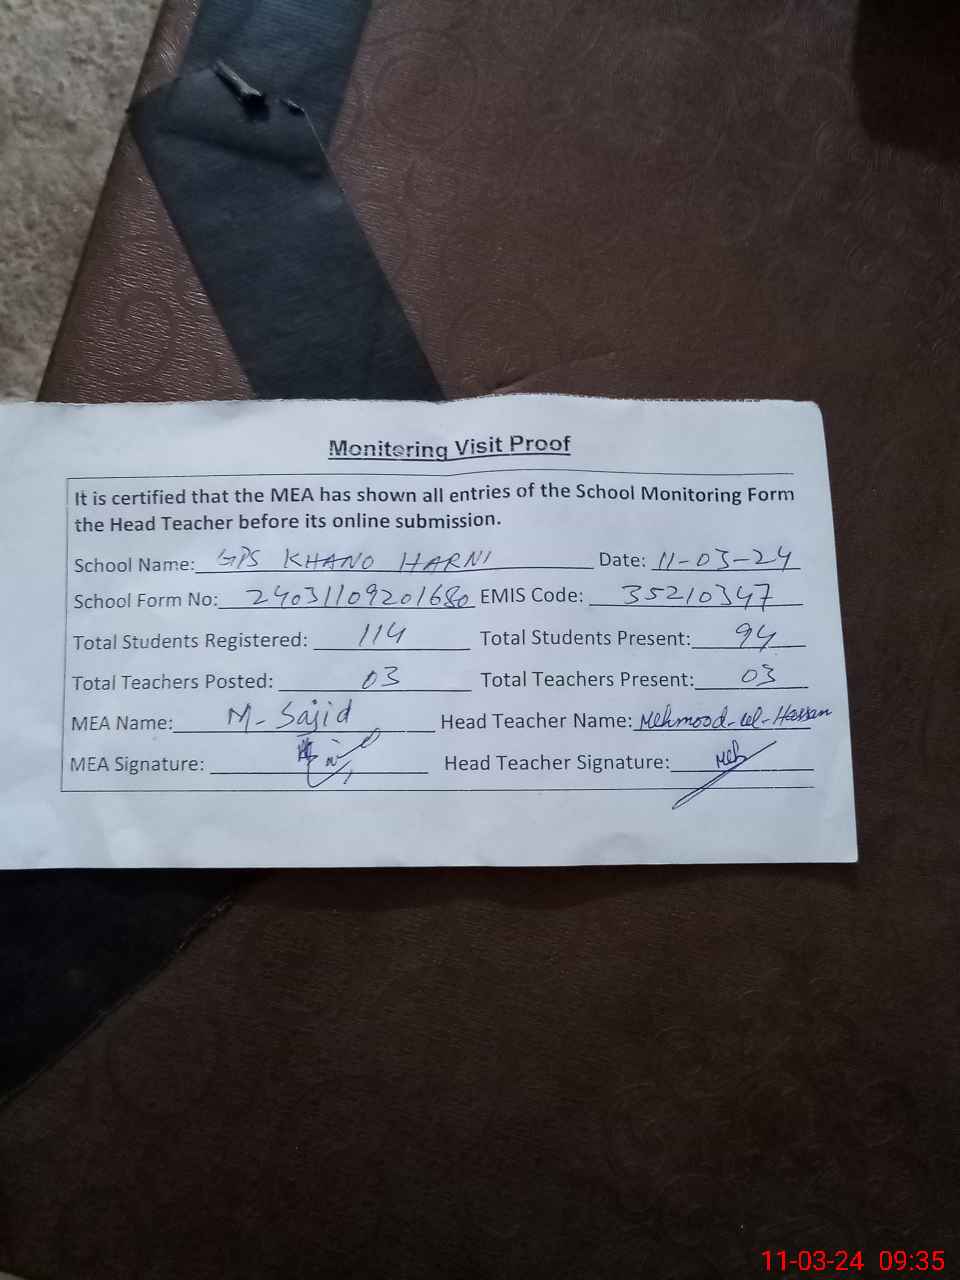 Monitoring Visit Proof
It is certified that the MEA has shown all entries of the School Monitoring Form
the Head Teacher before its online submission.
School Name: GPS KHANO HARNI Date: 11-03-24
School Form No: 24031109201680 EMIS Code: 35210347
Total Students Registered: 114 Total Students Present: 94
Total Teachers Posted: 03 Total Teachers Present: 03
MEA Name: M-Sajid Head Teacher Name: Mehmood-ul-Hassan
MEA Signature: Head Teacher Signature: Meh
11-03-24 09:35